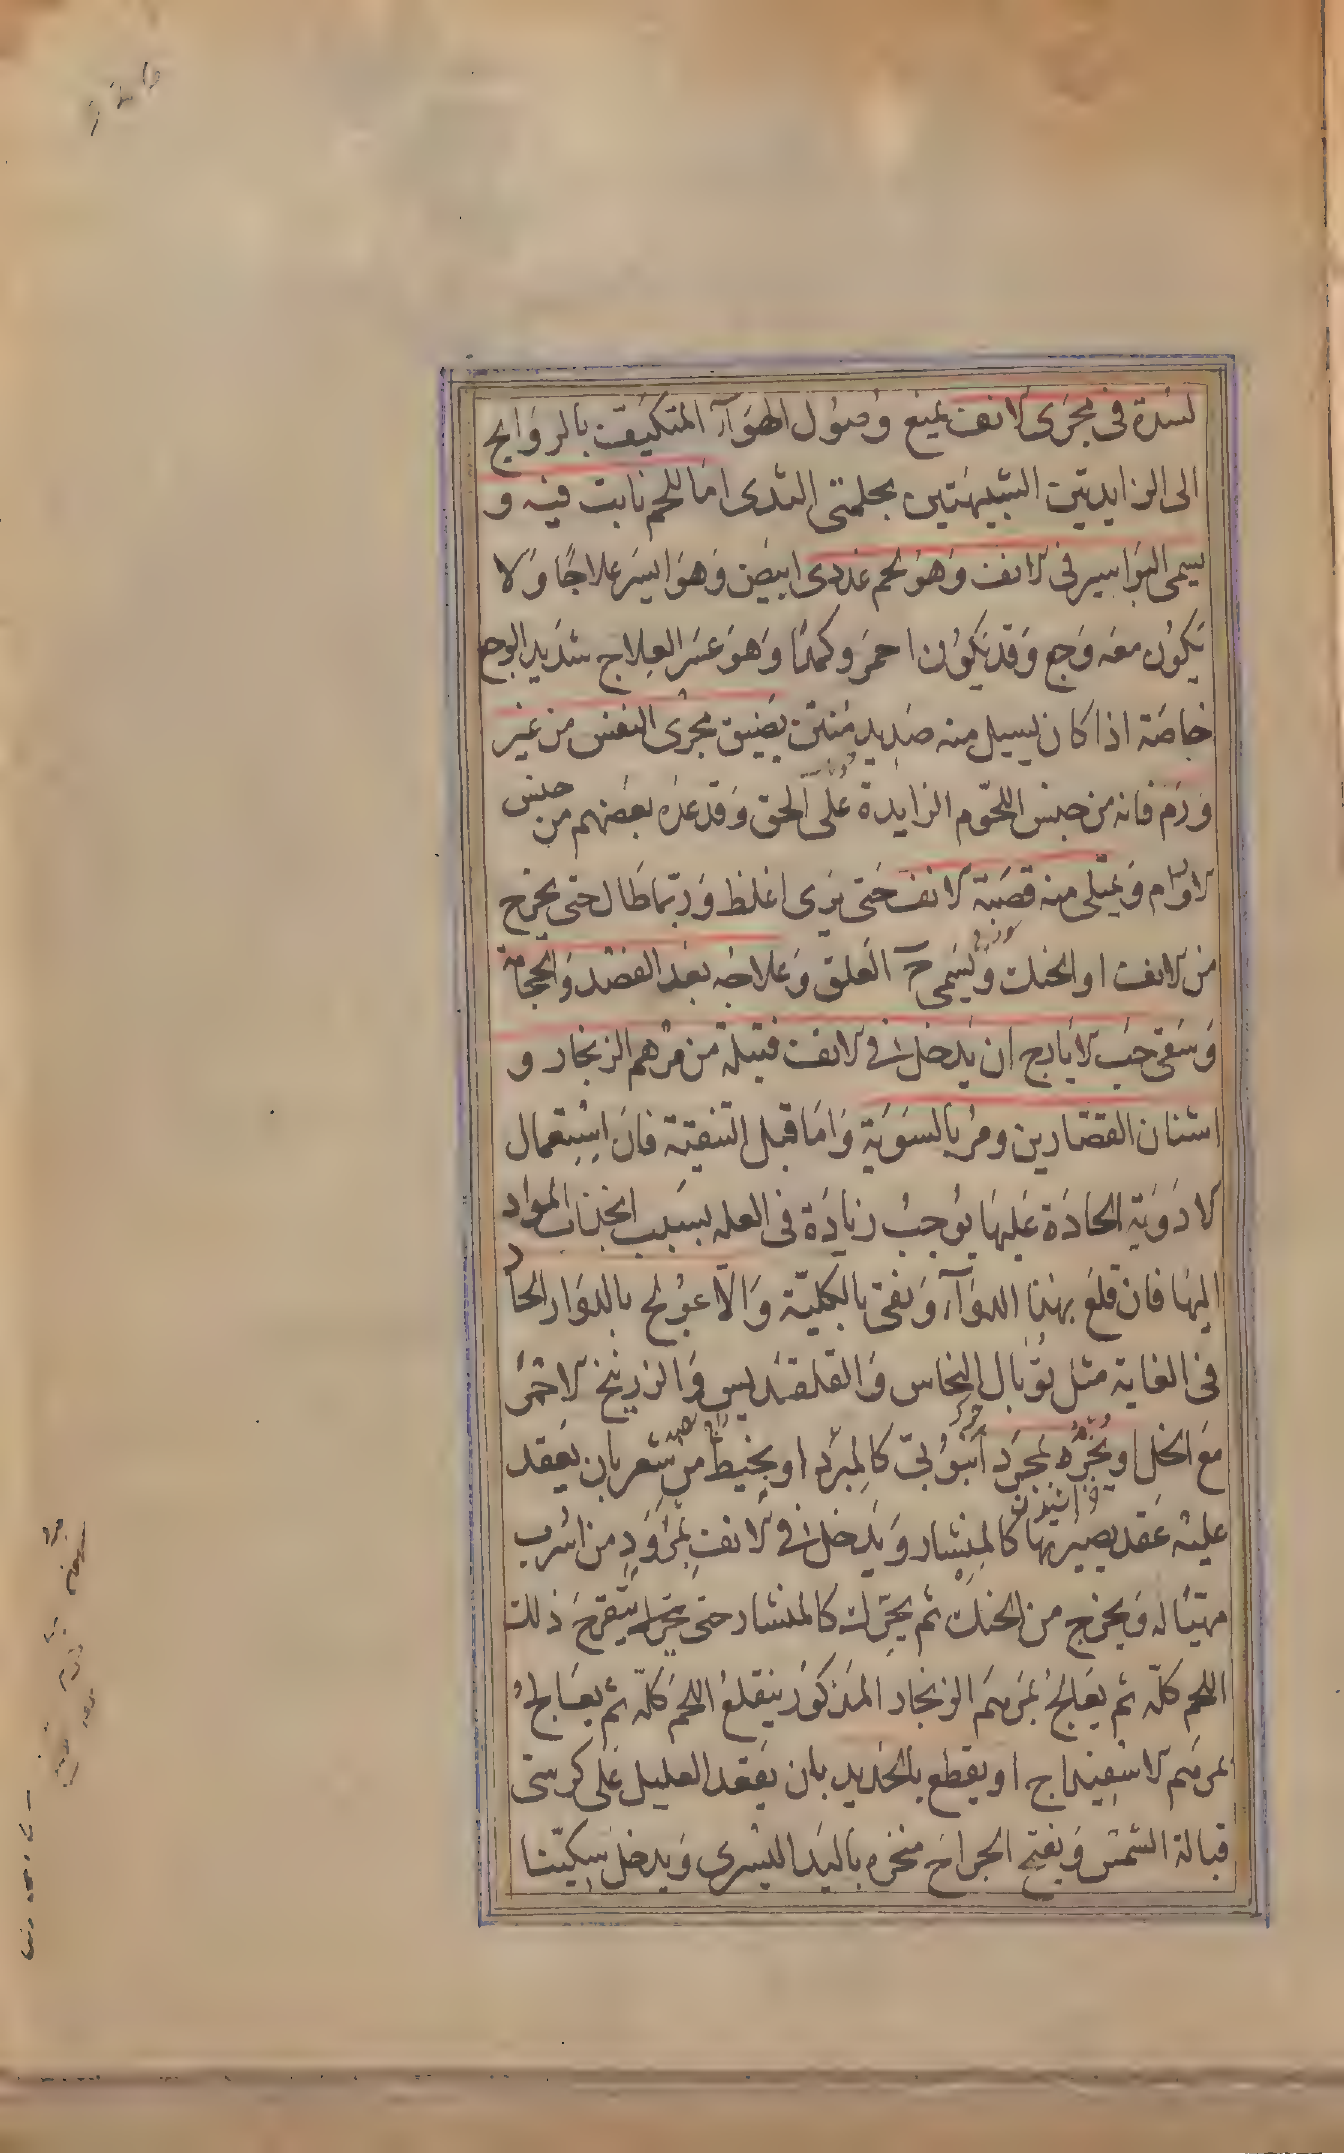 لسدة فى مجرى الانف يمنع وصول الهوآء المتكيفت بالروايح
الى الزايديتين الشبيهتين بحلمتى الثدى اما للحم نابت فيه و
يسمى البواسير فى الانف وهو لحم غددى ابيض وهو ايسر علاجًا ولا
يكون معه وجع وقد يكون احمر وكمدًا وهو عسر العلاج شديد الوجع
خاصة اذا كان يسيل منه صديد منتن يضيق مجرى النفس من غير
ورم فانه من جنس اللحوم الزايدة على الحق وقد عده بعضهم من جنس
الاورام ويمتلى منه قصبة الانف حتى يرى اغلظ وربما طال حتى يخرج
من الانف او الحنك ويسمى ح العلق وعلاجه بعد الفصد والحجامة
وسقى حب الايارج ان يدخل فى الانف فتيلة من مرهم الزنجار و
اشنان القصارين ومر بالسوية واما قبل التنقية فان استعمال
الادوية الحادة عليها يوجب زيادة فى العله بسبب انجذاب المواد
اليها فان قلع بهذا الدوآء ونفى بالكلية والا عولج بالدواء الحاد
فى الغاية مثل توبال النحاس والقلقديس والزرنيخ الاحمر
مع الخل او يجرد بمجرد انبوبى كالمبرد او بخيط من شعر بان يعقد
عليه عقد يصير بها كالمنشار ويدخل فى الانف بمرود من اسرب
مهيئا له ويخرج من الحنك ثم يحرك كالمنشار حتى يتقرح ذلك
اللحم كله ثم يعالج بمرهم الزنجار المذكور ينقلع اللحم كله ثم يعالج
بمرهم الاسفيداج او يقطع بالحديد بان يقعد العليل على كرسى
قبالة الشمس ويفتح الجراح منخره باليد اليسرى ويدخل سكينا